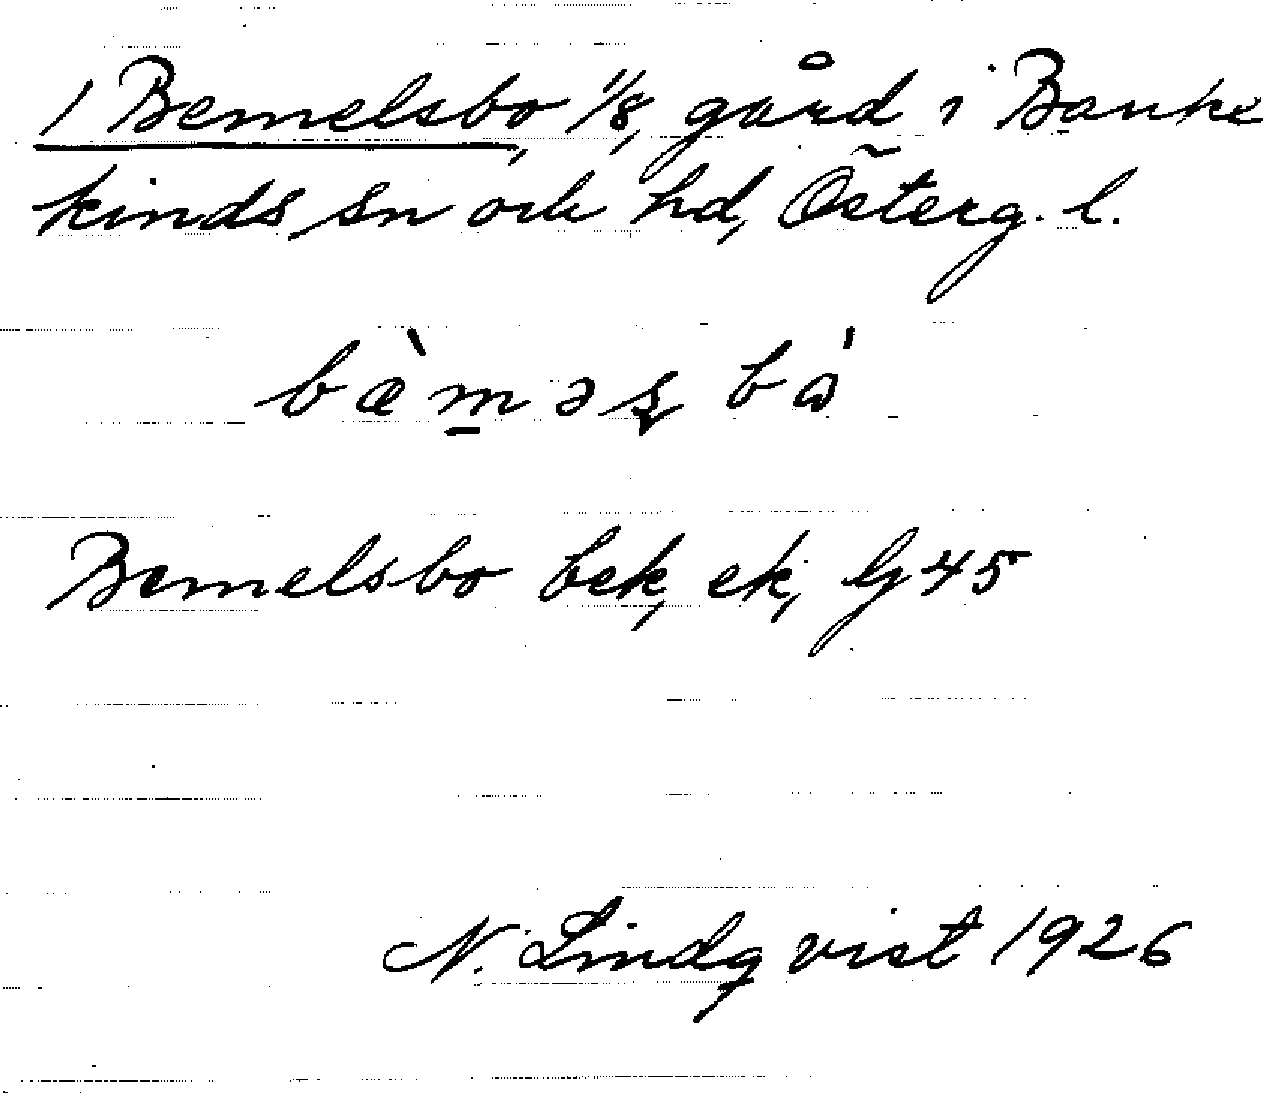 1 Bemelsbo 1/8, gård i Banke
kinds sn och hd, Österg. l.
bæ̀m̱əʂ bå̀
Bemelsbo bek, ek, G 45
N. Lindqvist 1926